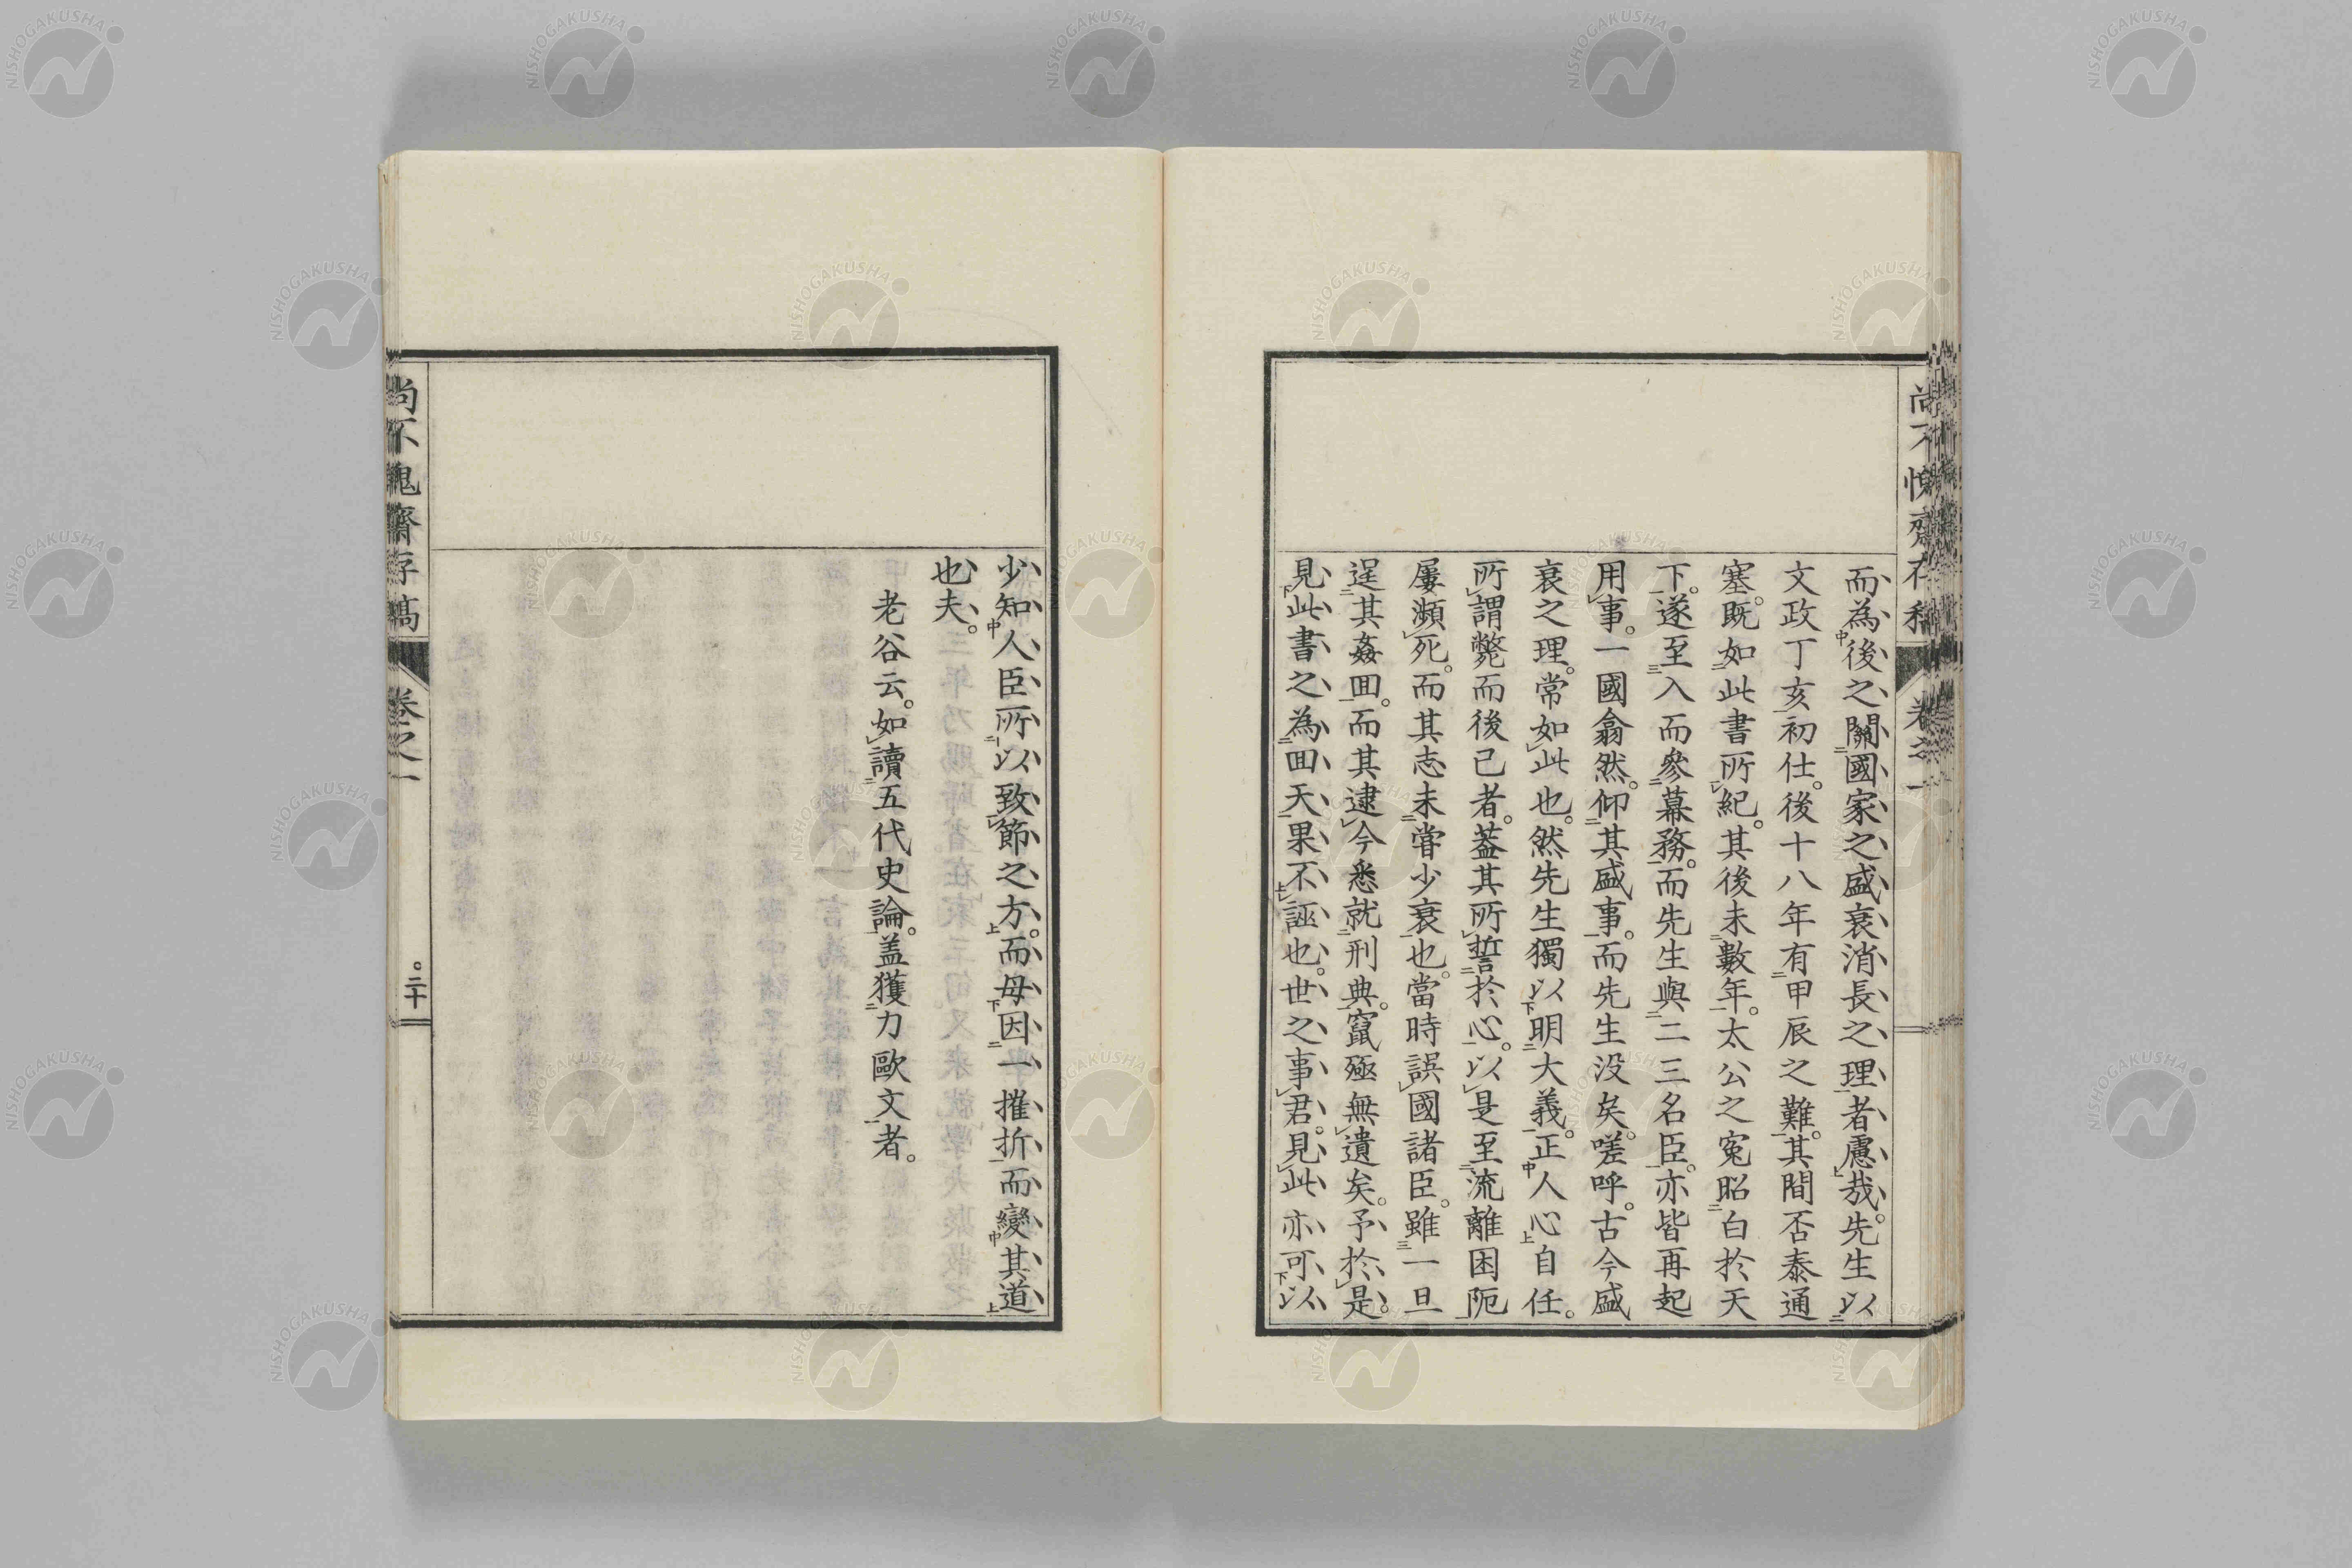 而為後之關國家之盛衰消長之理者慮哉。先生以
文政丁亥初仕。後十八年有甲辰之難。其間否泰通
塞。既如此書所紀。其後未數年。太公之冤昭白於天
下。遂至入而參幕務。而先生與二三名臣。亦皆再起
用事。一國翕然。仰其盛事。而先生没矣。嗟呼。古今盛
衰之理。常如此也。然先生獨以明大義。正人心自任。
所謂斃而後已者。蓋其所誓於心。以是至流離困阨
屢瀕死。而其志未嘗少衰也。當時誤國諸臣。雖一旦
逞其姦回。而其逮今悉就刑典。竄殛無遺矣。予於是。
見此書之為回天果不誣也。世之事君。見此亦可以
少知人臣所以致節之方。而毋因一摧折而變其道
也夫。
老谷云。如讀五代史論。盖獲力歐文者。
尚不愧齋存稿 卷之一 二十
NISHOGAKUSHA